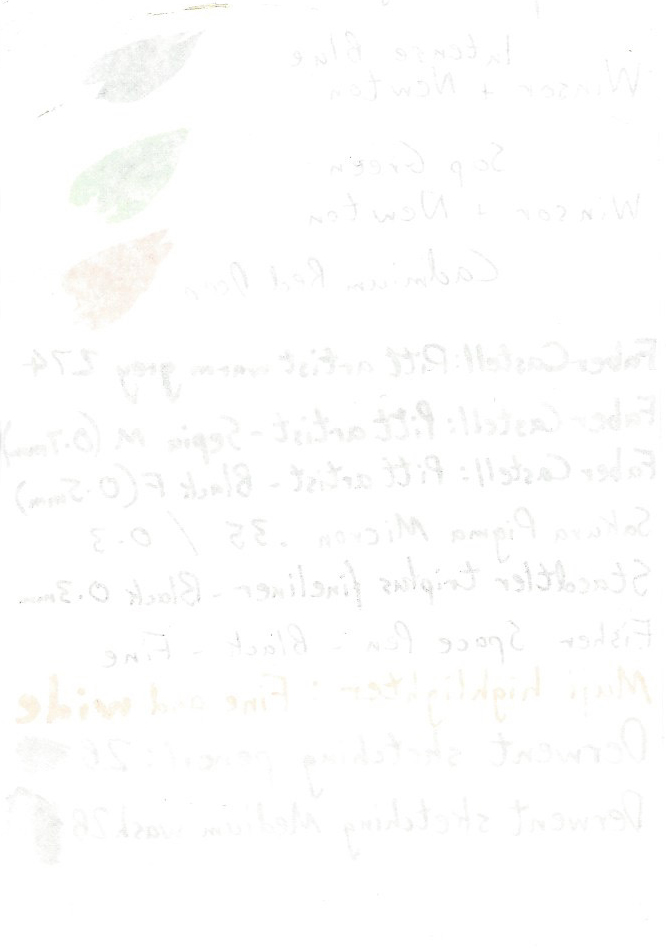 Intense Blue
Winsor + Newton
Sap Green
Winsor + Newton
Cadmium Red Deep
Faber Castell: Pitt artist warm grey 274
Faber Castell: Pitt artist - Sepia M (0.7mm)
Faber Castell: Pitt artist - Black F (0.5mm)
Sakura Pigma Micron .35 / 0.3
Staedtler triplus fineliner - Black 0.3mm
Fisher Space Pen - Black - Fine
Muji highlighter: Fine and wide
Derwent sketching pencil: 2B
Derwent sketching Medium wash 2B